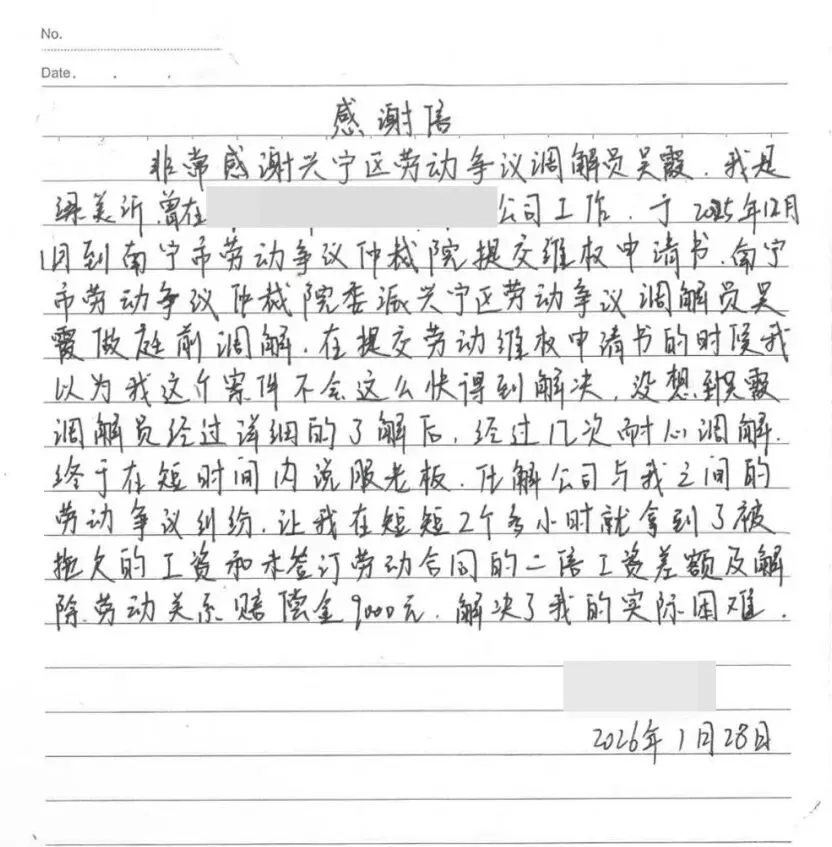 No.
Date. . .
感谢信
非常感谢兴宁区劳动争议调解员吴霞.我是
梁美沂.曾在 公司工作.于2025年12月
1日到南宁市劳动争议仲裁院提交维权申请书.南宁
市劳动争议仲裁院委派兴宁区劳动争议调解员吴
霞做庭前调解.在提交劳动维权申请书的时候我
以为我这个案件不会这么快得到解决.没想到吴霞
调解员经过详细的了解后.经过几次耐心调解.
终于在短时间内说服老板.化解公司与我之间的
劳动争议纠纷.让我在短短2个多小时就拿到了被
拖欠的工资和未签订劳动合同的二倍工资差额及解
除劳动关系赔偿金9000元.解决了我的实际困难.
2026年1月28日